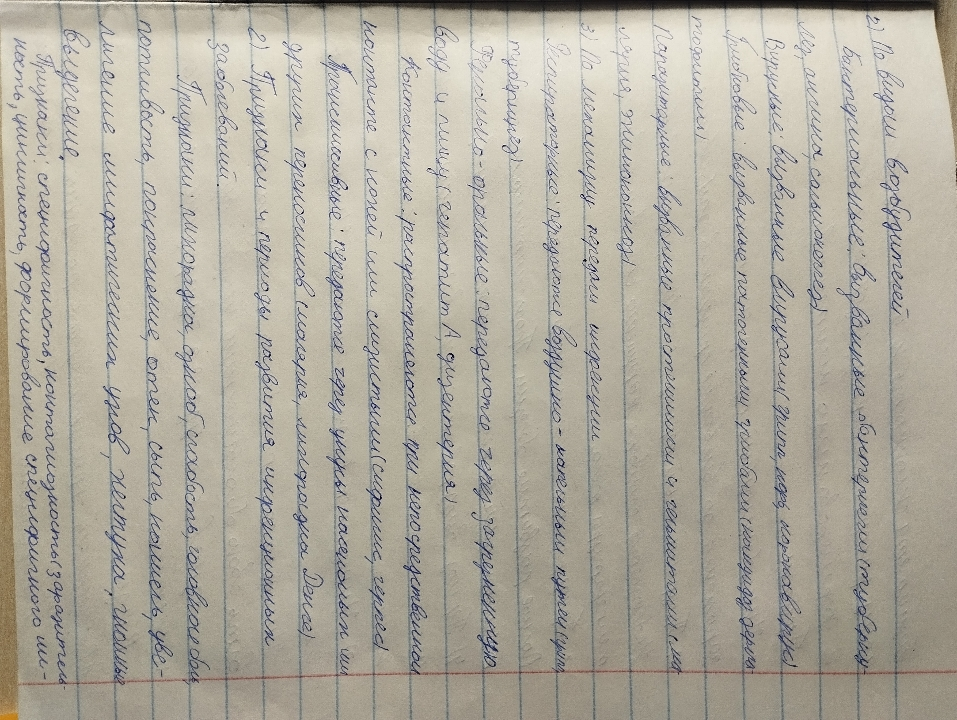 2) По видам возбудителей
Бактериальные: вызванные бактериями (туберку-
лёз, ангина, сальмонелёз)
Вирусные: вызванные вирусами (грипп, корь, коронавирус)
Грибковые: вызванные патогенными грибами (кандидоз, дерма-
томитоз)
Паразитарные: вызванные простейшими и гельминтами (ма-
лярия, эхинококкоз)
3) По механизму передачи инфекции
Респираторные: передаются воздушно-капельным путём (грипп
туберкулез)
Фекально-оральные: передаются через загрязненную
воду и пищу (гепатит А, дизентерия)
Контактные: распространяются при непосредственном
контакте с кожей или слизистыми (сифилис, герпес)
Трансмиссивные: передаются через укусы насекомых или
других переносчиков (малярия, лихорадка Денге)
2) Признаки и периоды развития инфекционных
заболеваний.
Признаки: лихорадка, озноб, слабость, головная боль,
потливость, покраснение, отек, сыпь, кашель, уве-
личение лимфатических узлов, желтуха, гнойные
выделения.
Признаки: специфичность, контагиозность (заразитель-
ность, цикличность, формирование специфичного им-